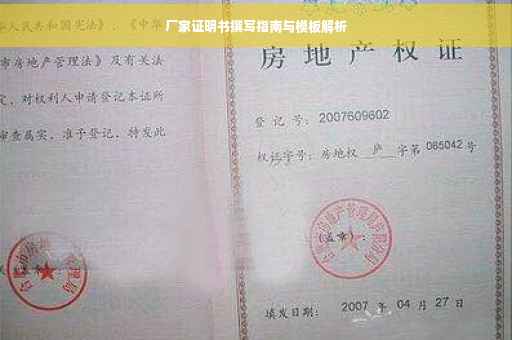 厂家证明书撰写指南与模板解析
华人民共和国宪法》、《中华
市房地产管理法》及有关法
定，对权利人申请登记本证所
审查属实，准予登记，特发此
房地产权证
登记号：2007609602
权证字号：房地权 庐 字第 085042 号
(盖章)：
填发日期： 2007 年 04 月 27 日